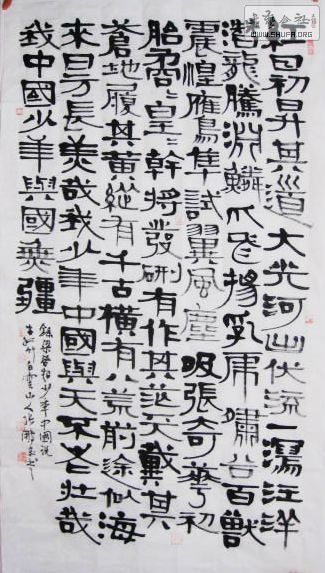 WWW.SHUFA.ORG
紅日初昇其道大光河山伏流一瀉汪洋
潛龍騰淵鱗爪飛揚乳虎嘯谷百獸
震惶鷹隼試翼風塵吸張奇華初
胎矞〻皇〻幹將發硎有作其芒天戴其
蒼地履其黃縱有千古橫有八荒前途似海
來日方長美哉我少年中國與天不老壯哉
我中國少年與國無疆
錄梁啟超少年中國說
白雲山人